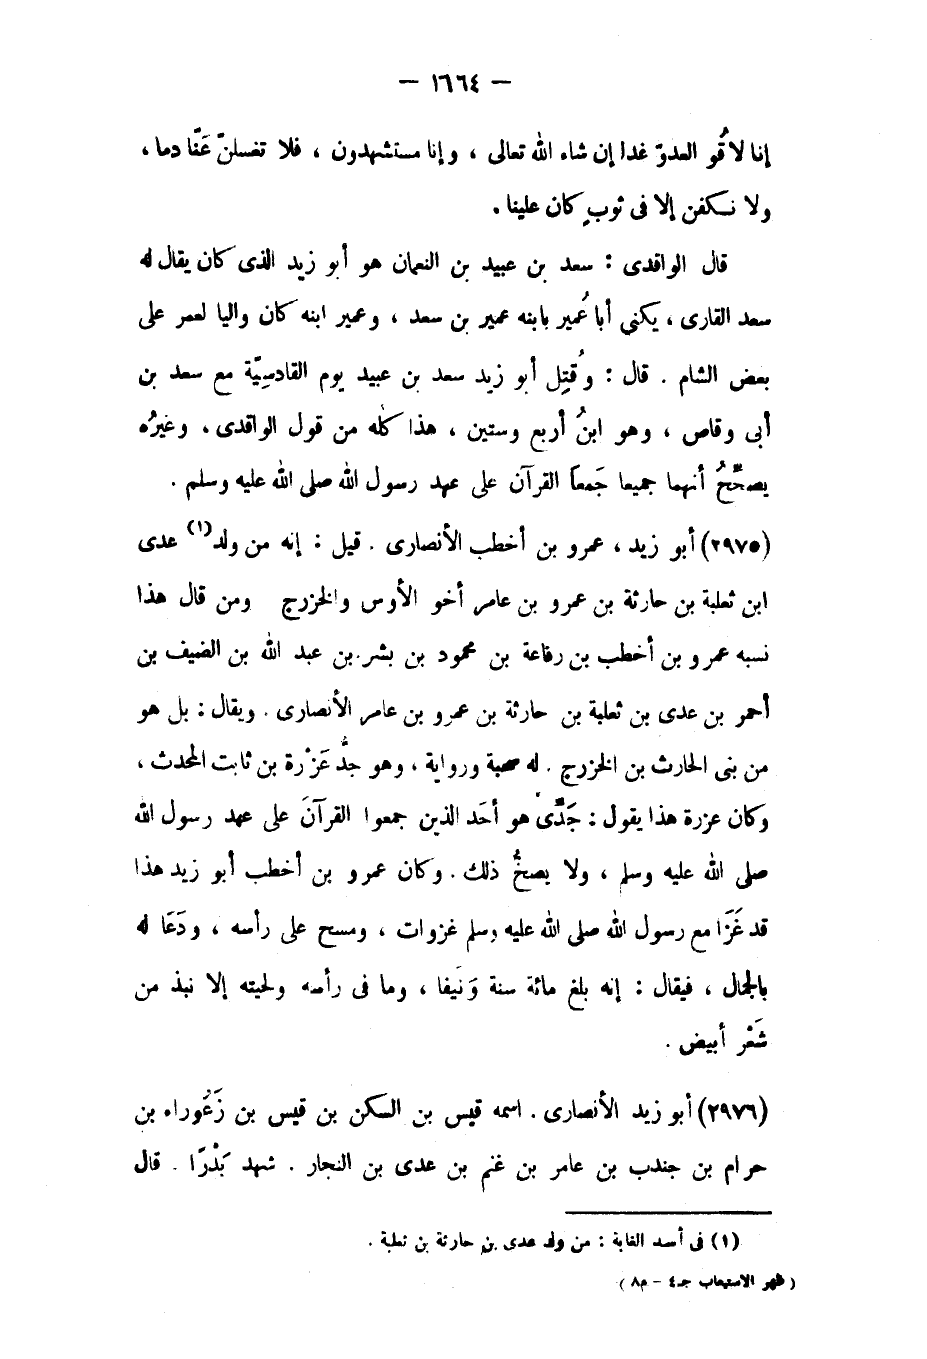 — ١٦٦٤ —
إنا لاقُو العدوّ غدا إن شاء الله تعالى ، وإنا مستشهدون ، فلا تغسلنّ عَنّا دما ،
ولا نكفن إلا فى ثوبٍ كان علينا .
قال الواقدى : سعد بن عبيد بن النعمان هو أبو زيد الذى كان يقال له
سعد القارى ، يكنى أبا عُمير بابنه عمير بن سعد ، وعمير ابنه كان واليا لعمر على
بعض الشام . قال : وقُتِل أبو زيد سعد بن عبيد يوم القادسِيّة مع سعد بن
أبى وقاص ، وهو ابنُ أربع وستين ، هذا كله من قول الواقدى ، وغيرُه
يصحّحُ أنهما جميعا جَمعاً القرآن على عهد رسول الله صلى الله عليه وسلم .
(٢٩٧٥) أبو زيد ، عمرو بن أخطب الأنصارى . قيل : إنه من ولد(١) عدى
ابن ثعلبة بن حارثة بن عمرو بن عامر أخو الأوس والخزرج ومن قال هذا
نسبه عمرو بن أخطب بن رفاعة بن محمود بن بشر بن عبد الله بن الضيف بن
أحمر بن عدى بن ثعلبة بن حارثة بن عمرو بن عامر الأنصارى . ويقال : بل هو
من بنى الحارث بن الخزرج . له صحبة ورواية ، وهو جدُّ عَزْرة بن ثابت المحدث ،
وكان عزرة هذا يقول : جَدّى هو أحَد الذين جمعوا القرآنَ على عهد رسول الله
صلى الله عليه وسلم ، ولا يصحُّ ذلك . وكان عمرو بن أخطب أبو زيد هذا
قد غَزَا مع رسول الله صلى الله عليه وسلم غزوات ، ومسح على رأسه ، ودَعَا له
بالجمال ، فيقال : إنه بلغ مائة سنة وَنيفا ، وما فى رأسه ولحيته إلا نبذ من
شَعْر أبيض .
(٢٩٧٦) أبو زيد الأنصارى . اسمه قيس بن السكن بن قيس بن زَعُوراء بن
حرام بن جندب بن عامر بن غنم بن عدى بن النجار . شهد بَدْرًا . قال
(١) فى أسد الغابة : من ولد عدى بن حارثة بن ثعلبة .
( ظهر الاستيعاب جـ٤ – م٨ )